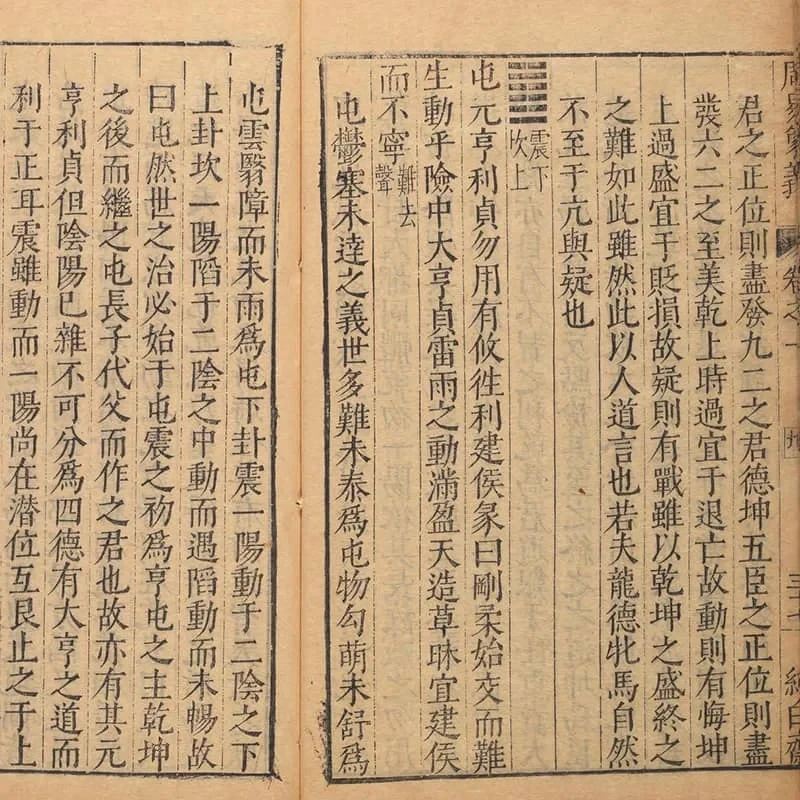 周易象義 卷之一 坤 三十七 純白齋
君之正位則盡發九二之君德坤五臣之正位則盡
發六二之至美乾上時過宜于退亡故動則有悔坤
上過盛宜于貶損故疑則有戰雖以乾坤之盛終之
之難如此雖然此以人道言也若夫龍德牝馬自然
不至于亢與疑也
震下
坎上
屯元亨利貞勿用有攸往利建侯彖曰剛柔始交而難
生動乎險中大亨貞雷雨之動滿盈天造草昧宜建侯
而不寧難去
聲
屯鬱塞未達之義世多難未泰爲屯物勾萌未舒爲
屯雲翳障而未雨爲屯下卦震一陽動于二陰之下
上卦坎一陽陷于二陰之中動而遇陷動而未暢故
曰屯然世之治必始于屯震之初爲亨屯之主乾坤
之後而繼之屯長子代父而作之君也故亦有其元
亨利貞但陰陽已雜不可分爲四德有大亨之道而
利于正耳震雖動而一陽尚在潛位互艮止之于上